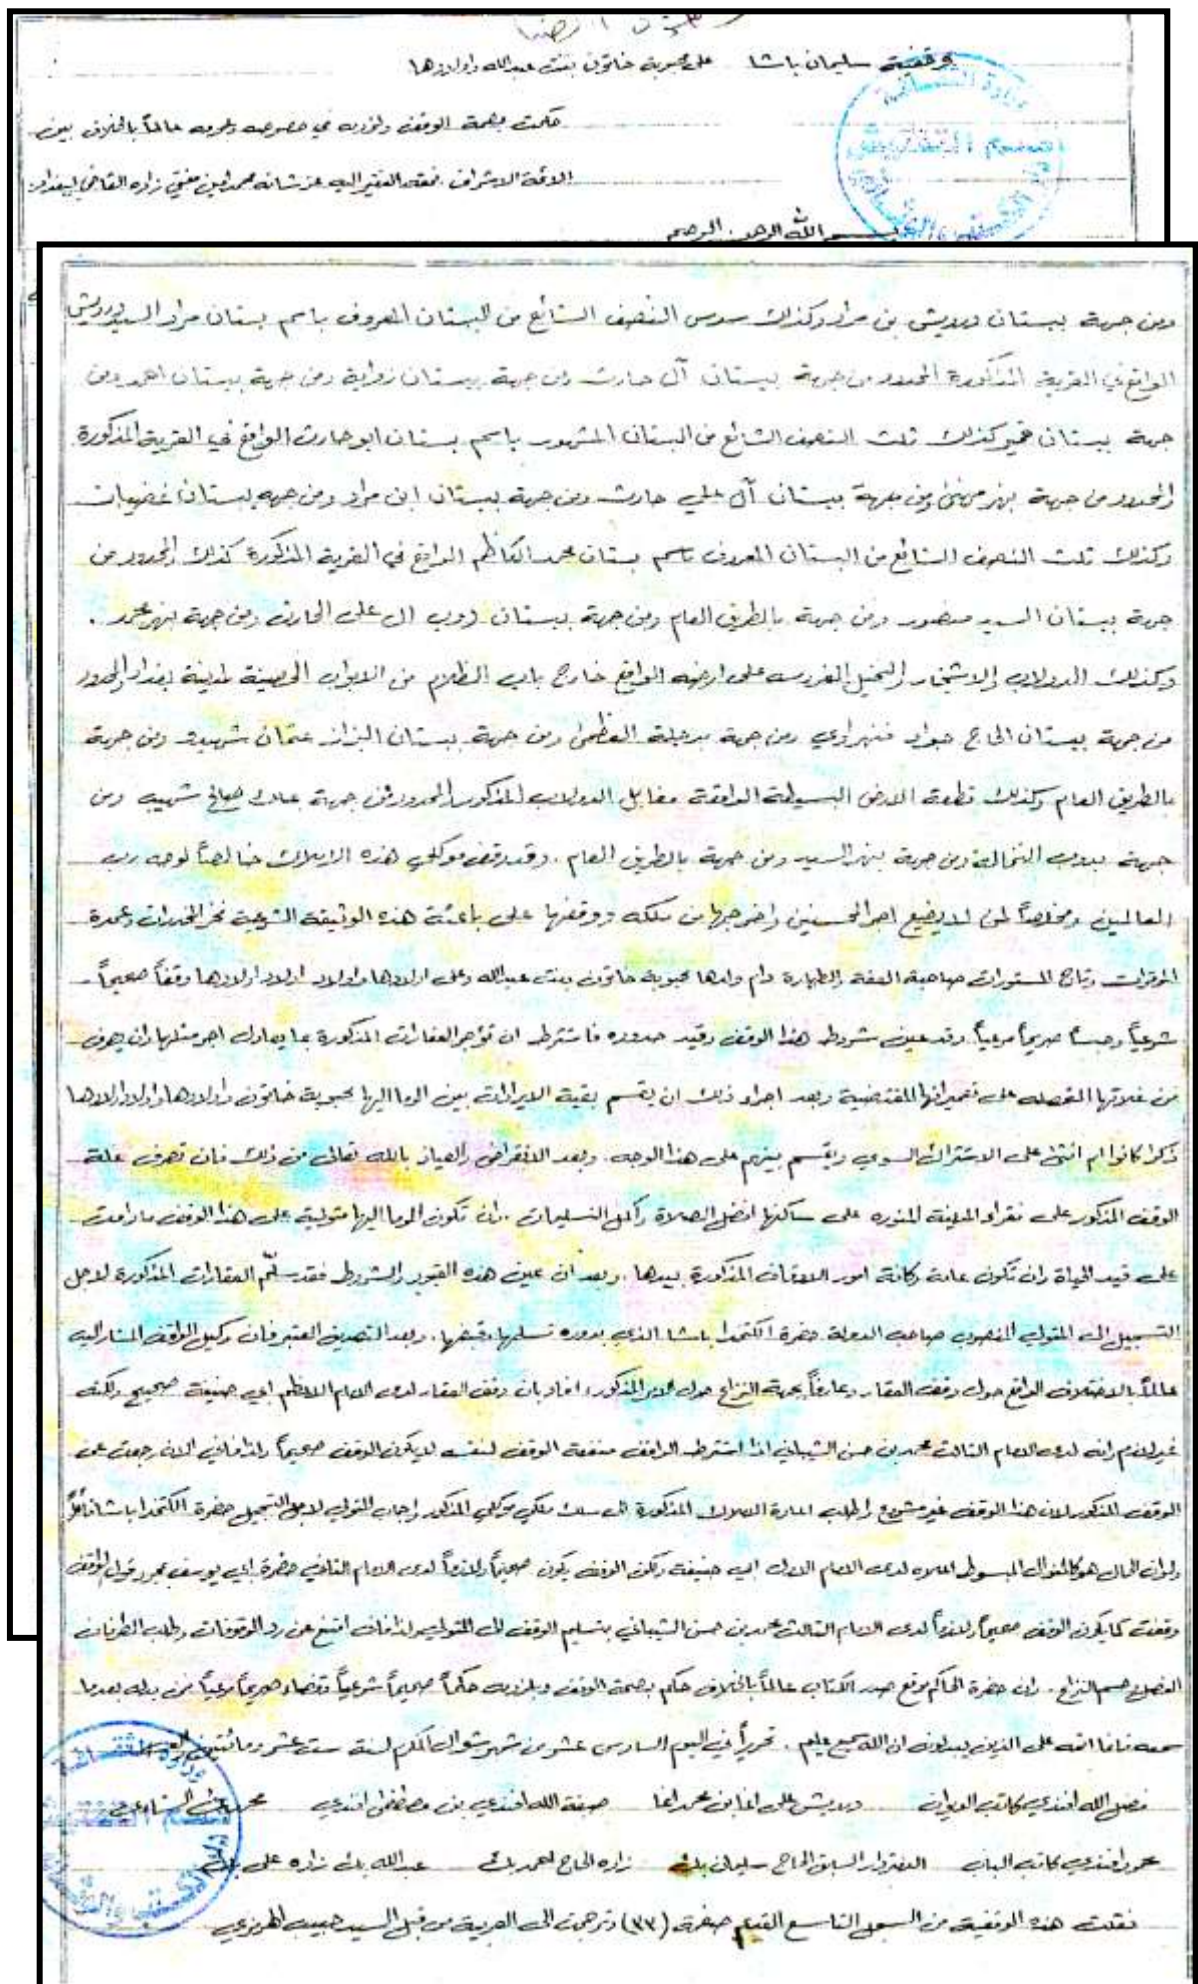 وقفية سليمان باشا على محبوبة خاتون بنت عبدالله واولادها
حكمت بصحة الوقف ولزومه في خصوصه وعمومه عالماً بالخلاف بين
الائمة الاشراف نمقه الفقير اليه عز شأنه محمد امين مفتي زاده القاضي ببغداد
بسم الله الرحمن الرحيم
ومن جهة ببستان درويش بن مراد وكذلك سدس النصف الشائع من البستان المعروف باسم بستان مراد السيد درويش
الواقع في القرية المذكورة المحدود من جهة ببستان آل حارث ومن جهة ببستان زواية ومن جهة ببستان احمد ومن
جهة ببستان وكذلك ثلث النصف الشائع من البستان المشهور باسم بستان ابو حارث الواقع في القرية المذكورة
والمحدود من جهة بنهر ومن جهة ببستان آل علي حارث ومن جهة ببستان ابن مراد ومن جهة ببستان غضيبات
وكذلك ثلث النصف الشائع من البستان المعروف باسم بستان محمد الكاظم الواقع في القرية المذكورة كذلك والمحدود من
جهة ببستان السيد منصور ومن جهة بالطريق العام ومن جهة ببستان ال علي الحارث ومن جهة بنهر .
وكذلك الدولاب والاشجار والنخيل المغروسة على ارضه الواقع خارج باب الظلام من الابواب الحصينة لمدينة بغداد والمحدود
من جهة ببستان الحاج جواد ومن جهة بدجلة العظمى ومن جهة ببستان البزاز عثمان ومن جهة
بالطريق العام وكذلك قطعة الارض البسيطة الواقعة مقابل الدولاب المذكور والمحدود من جهة صالح ومن
جهة بدرب ومن جهة بنهر السيد ومن جهة بالطريق العام . وقد وقف موكلي هذه الاملاك خالصاً لوجه رب
العالمين ومخلصاً لمن لا يضيع اجر المحسنين واخرجها من ملكه ووقفها على باعثة هذه الوثيقة الشرعية فخر المخدرات وعمدة
الموقرات وتاج المستورات صاحبة العفة والطهارة محبوبة خاتون بنت عبدالله وعلى اولادها واولاد اولاد اولادها وقفاً صحيحاً
شرعياً وحبساً صريحاً مرعياً وقد عين شروط هذا الوقف وقيد حدوده فاشترط ان تؤجر العقارات المذكورة بما يعادل اجر مثلها وان يصرف
من غلاتها المتحصلة على تعميراتها المقتضية وبعد اجراء ذلك ان يقسم بقية الايرادات بين الموما اليها محبوبة خاتون واولادها واولاد اولادها
ذكرا كانوا ام انثى على الاشتراك السوي ويقسم بينهم على هذا الوجه . وبعد الانقراض والعياذ بالله تعالى من ذلك فان تصرف غلة
الوقف المذكور على فقراء المدينة المنورة على ساكنها افضل الصلاة واكمل التسليمات . وان تكون الموما اليها متولية على هذا الوقف ما دامت
على قيد الحياة وان تكون عامة وكافة امور الاوقاف المذكورة بيدها . وبعد ان عين هذه القيود والشروط فقد سلّم العقارات المذكورة لاجل
التسجيل الى المتولي المنصوب صاحب الدولة حضرة الكتخدا باشا الذي بدوره تسلمها وقبضها . وبعد التصديق المعتبر فان وكيل الواقف المشار اليه
عالماً بالاختلاف الواقع حول وقف العقار وعارفاً بجهة النزاع حول الامر المذكور ، افاد بان وقف العقار لدى الامام الاعظم ابي حنيفة صحيح ولكنه
غير لازم وانه لدى الامام الثالث محمد بن حسن الشيباني اذا اشترط الواقف منفعة الوقف لنفسه لا يكون الوقف صحيحاً ولذا فاني الان رجعت عن
الوقف المذكور لان هذا الوقف غير مشروع واطلب اعادة الاملاك المذكورة الى سلك ملكي موكلي المذكور واجاب المتولي لاجل التسجيل حضرة الكتخدا باشا قائلاً
ولو ان الحال هو كالمنوال المبسوط اعلاه لدى الامام الاول ابي حنيفة ولكن الوقف يكون صحيحاً ولازماً لدى الامام الثاني حضرة ابي يوسف بمجرد قول الواقف
وقفت كما يكون الوقف صحيحاً ولازماً لدى الامام الثالث محمد بن حسن الشيباني بتسليم الوقف الى المتولي ولذا فانه امتنع عن رد الموقوفات وطلب الطرفان
الفصل وحسم النزاع . وان حضرة الحاكم موقع صدر الكتاب عالماً بالخلاف حكم بصحة الوقف وبلزومه حكماً صحيحاً شرعياً وقضاء صريحاً مرعياً فمن بدله بعدما
سمعه فانما اثمه على الذين يبدلونه ان الله سميع عليم . تحريراً في اليوم السادس عشر من شهر شوال المكرم لسنة ست عشر ومائتين والف
فضل الله افندي كاتب الديوان درويش علي اغا ابن محمد اغا صبغة الله افندي بن مصطفى افندي
محمود افندي كاتب الباب الدفتردار السابق الحاج سليمان بك زاده الحاج احمد بك عبدالله بك زاده علي بك
نقلت هذه الوقفية من السجل التاسع القديم صفحة (٣٣) وترجمت الى العربية من قبل السيد حبيب